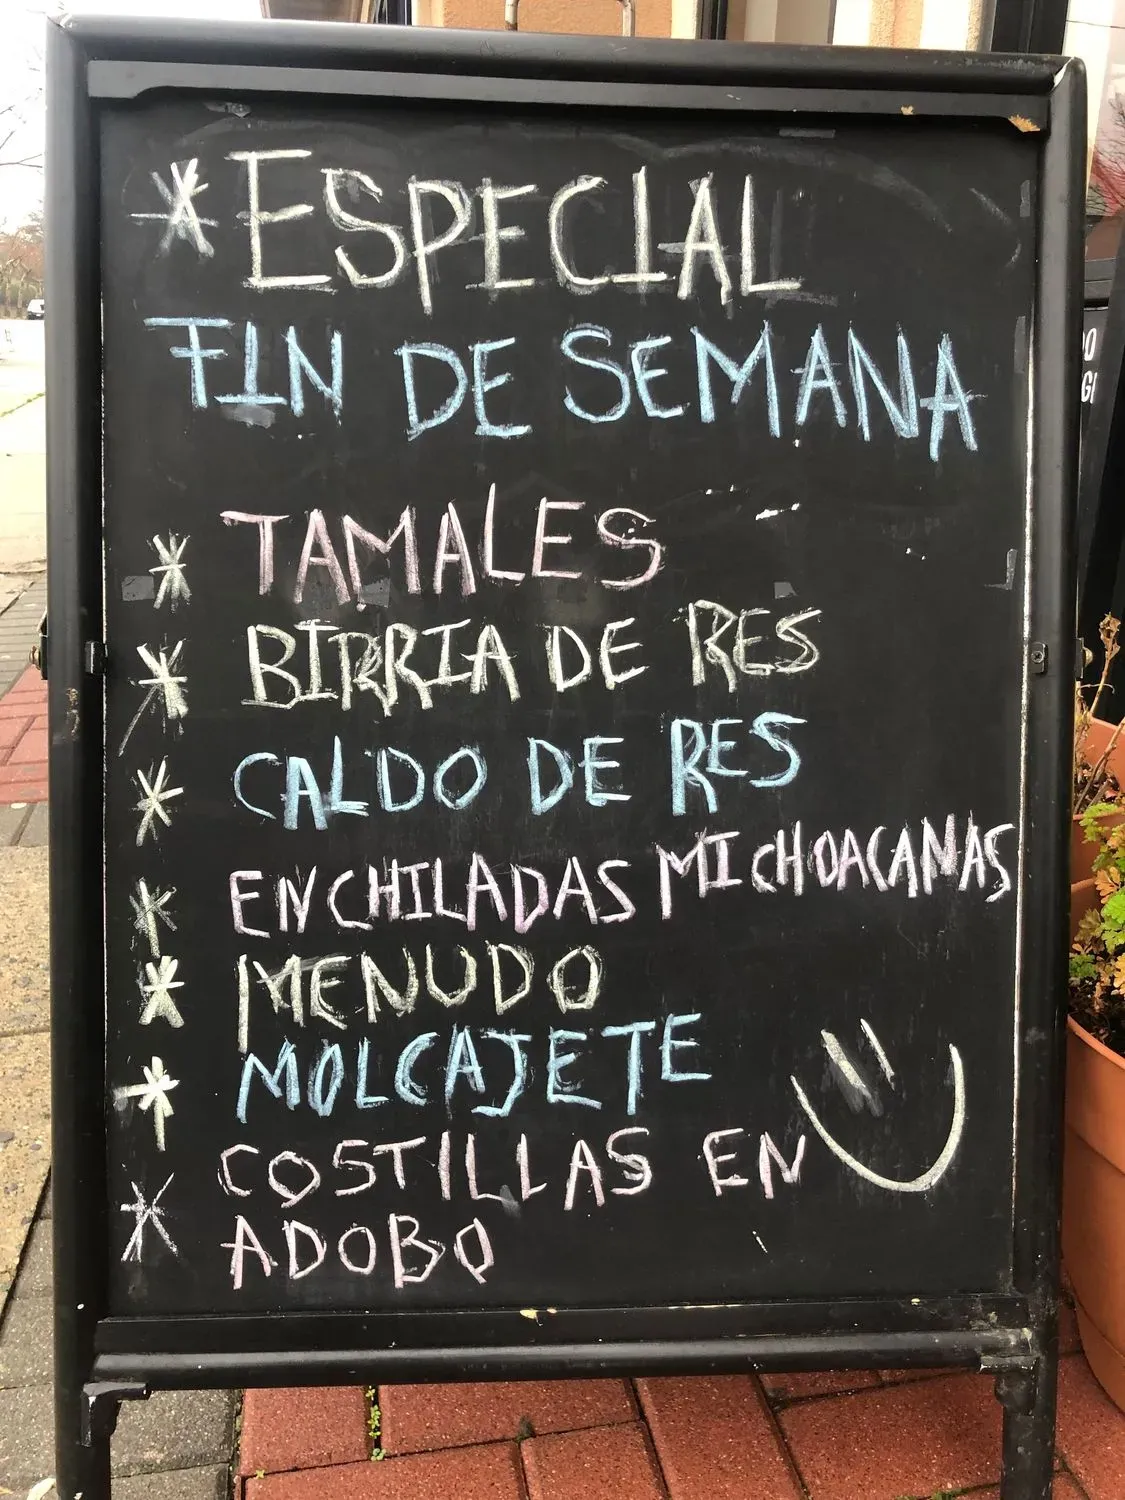 * ESPECIAL
FIN DE SEMANA
* TAMALES
* BIRRIA DE RES
* CALDO DE RES
* ENCHILADAS MICHOACANAS
* MENUDO
* MOLCAJETE
* COSTILLAS EN
ADOBO